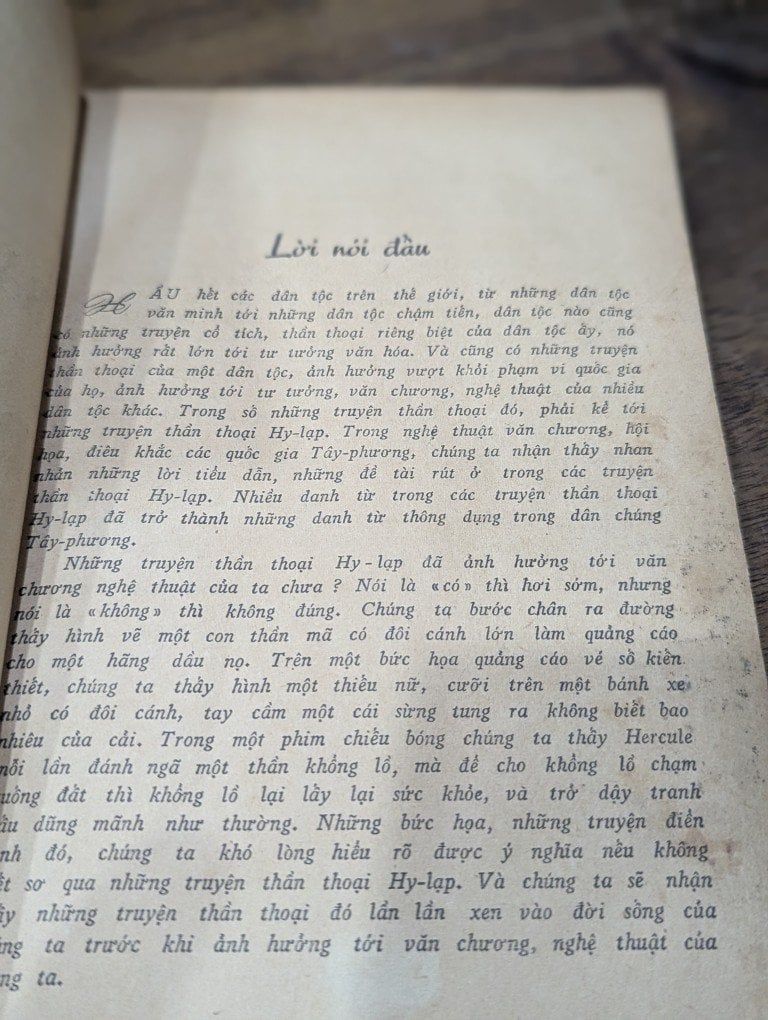 Lời nói đầu
HẦU hết các dân tộc trên thế giới, từ những dân tộc
văn minh tới những dân tộc chậm tiến, dân tộc nào cũng
có những truyện cổ tích, thần thoại riêng biệt của dân tộc ấy, nó
ảnh hưởng rất lớn tới tư tưởng văn hóa. Và cũng có những truyện
thần thoại của một dân tộc, ảnh hưởng vượt khỏi phạm vi quốc gia
của họ, ảnh hưởng tới tư tưởng, văn chương, nghệ thuật của nhiều
dân tộc khác. Trong số những truyện thần thoại đó, phải kể tới
những truyện thần thoại Hy-lạp. Trong nghệ thuật văn chương, hội
họa, điêu khắc các quốc gia Tây-phương, chúng ta nhận thấy nhan
nhản những lời tiểu dẫn, những đề tài rút ở trong các truyện
thần thoại Hy-lạp. Nhiều danh từ trong các truyện thần thoại
Hy-lạp đã trở thành những danh từ thông dụng trong dân chúng
Tây-phương.
Những truyện thần thoại Hy-lạp đã ảnh hưởng tới văn
chương nghệ thuật của ta chưa ? Nói là «có» thì hơi sớm, nhưng
nói là «không» thì không đúng. Chúng ta bước chân ra đường
thấy hình vẽ một con thần mã có đôi cánh lớn làm quảng cáo
cho một hãng dầu nọ. Trên một bức họa quảng cáo vé số kiến
thiết, chúng ta thấy hình một thiếu nữ, cưỡi trên một bánh xe
nhỏ có đôi cánh, tay cầm một cái sừng tung ra không biết bao
nhiêu của cải. Trong một phim chiếu bóng chúng ta thấy Hercule
mỗi lần đánh ngã một thần khổng lồ, mà để cho khổng lồ chạm
uống đất thì khổng lồ lại lấy lại sức khỏe, và trở dậy tranh
ấu dũng mãnh như thường. Những bức họa, những truyện điển
nh đó, chúng ta khó lòng hiểu rõ được ý nghĩa nếu không
ết sơ qua những truyện thần thoại Hy-lạp. Và chúng ta sẽ nhận
ấy những truyện thần thoại đó lần lần xen vào đời sống của
ng ta trước khi ảnh hưởng tới văn chương, nghệ thuật của
ng ta.